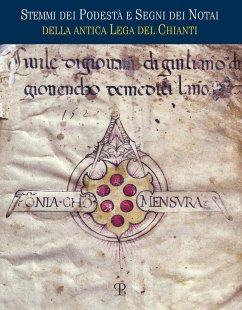 Stemmi dei Podestà e Segni dei Notai
della antica Lega del Chianti
Civile di giovanni di giuliano di
giovencho de medici lano.
ONIA·CHŌ MENSVRA
152